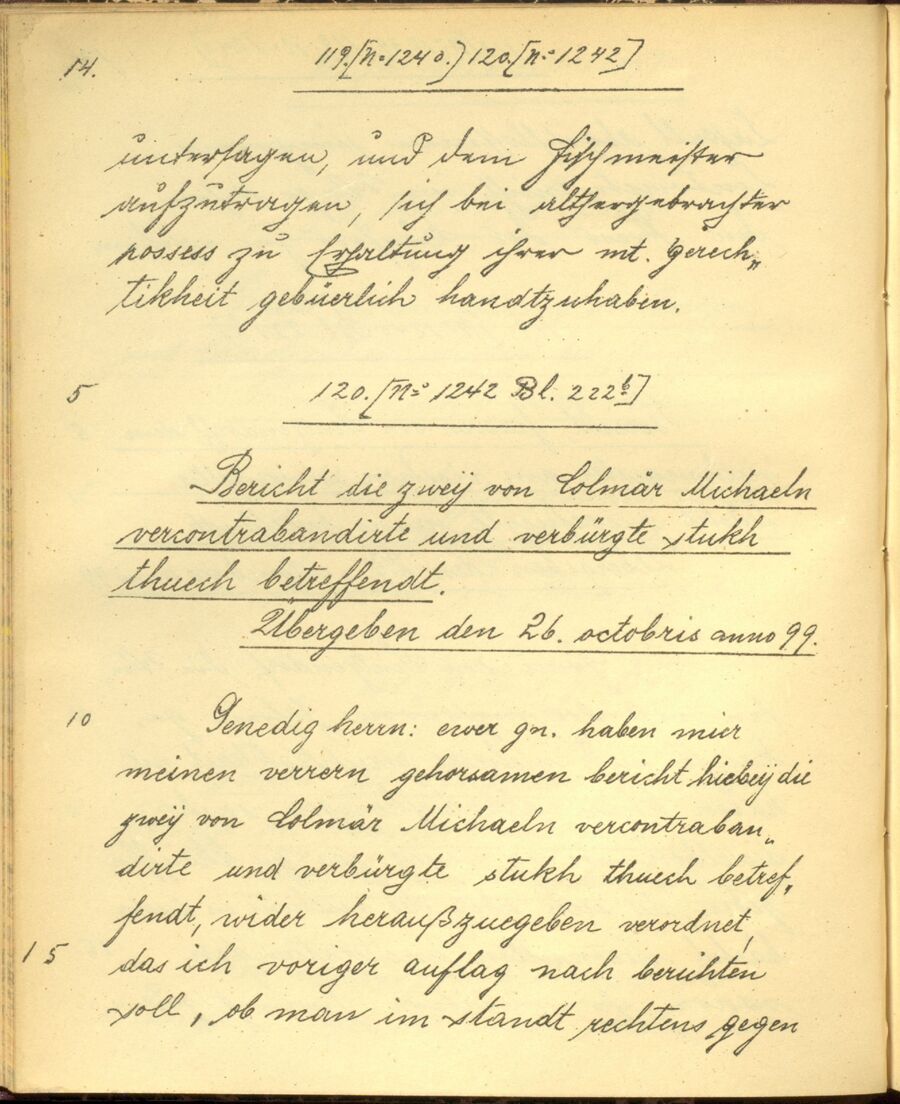 14.
119.[No 1240.] 120.[No 1242]
untersagen, und dem Fischmeister
aufzutragen, sich bei althergebrachter
possess zu Erhaltung ihrer mt. gerech„
tikheit gebüerlich handtzuhaben.
5 120.[No 1242 Bl. 222b]
Bericht die zweÿ von Colmär Michaeln
vercontrabandirte und verbürgte stukh
thuech betreffendt.
Übergeben den 26. octobris anno 99.
10 Genedig herrn: ewer gn. haben mier
meinen verrern gehorsamen bericht hiebeÿ die
zweÿ von Colmär Michaeln vercontraban„
dirte und verbürgte stukh thuech betref„
fendt, wider heraußzuegeben verordnet,
15 das ich voriger auflag nach berichten
soll, ob man im standt rechtens gegen